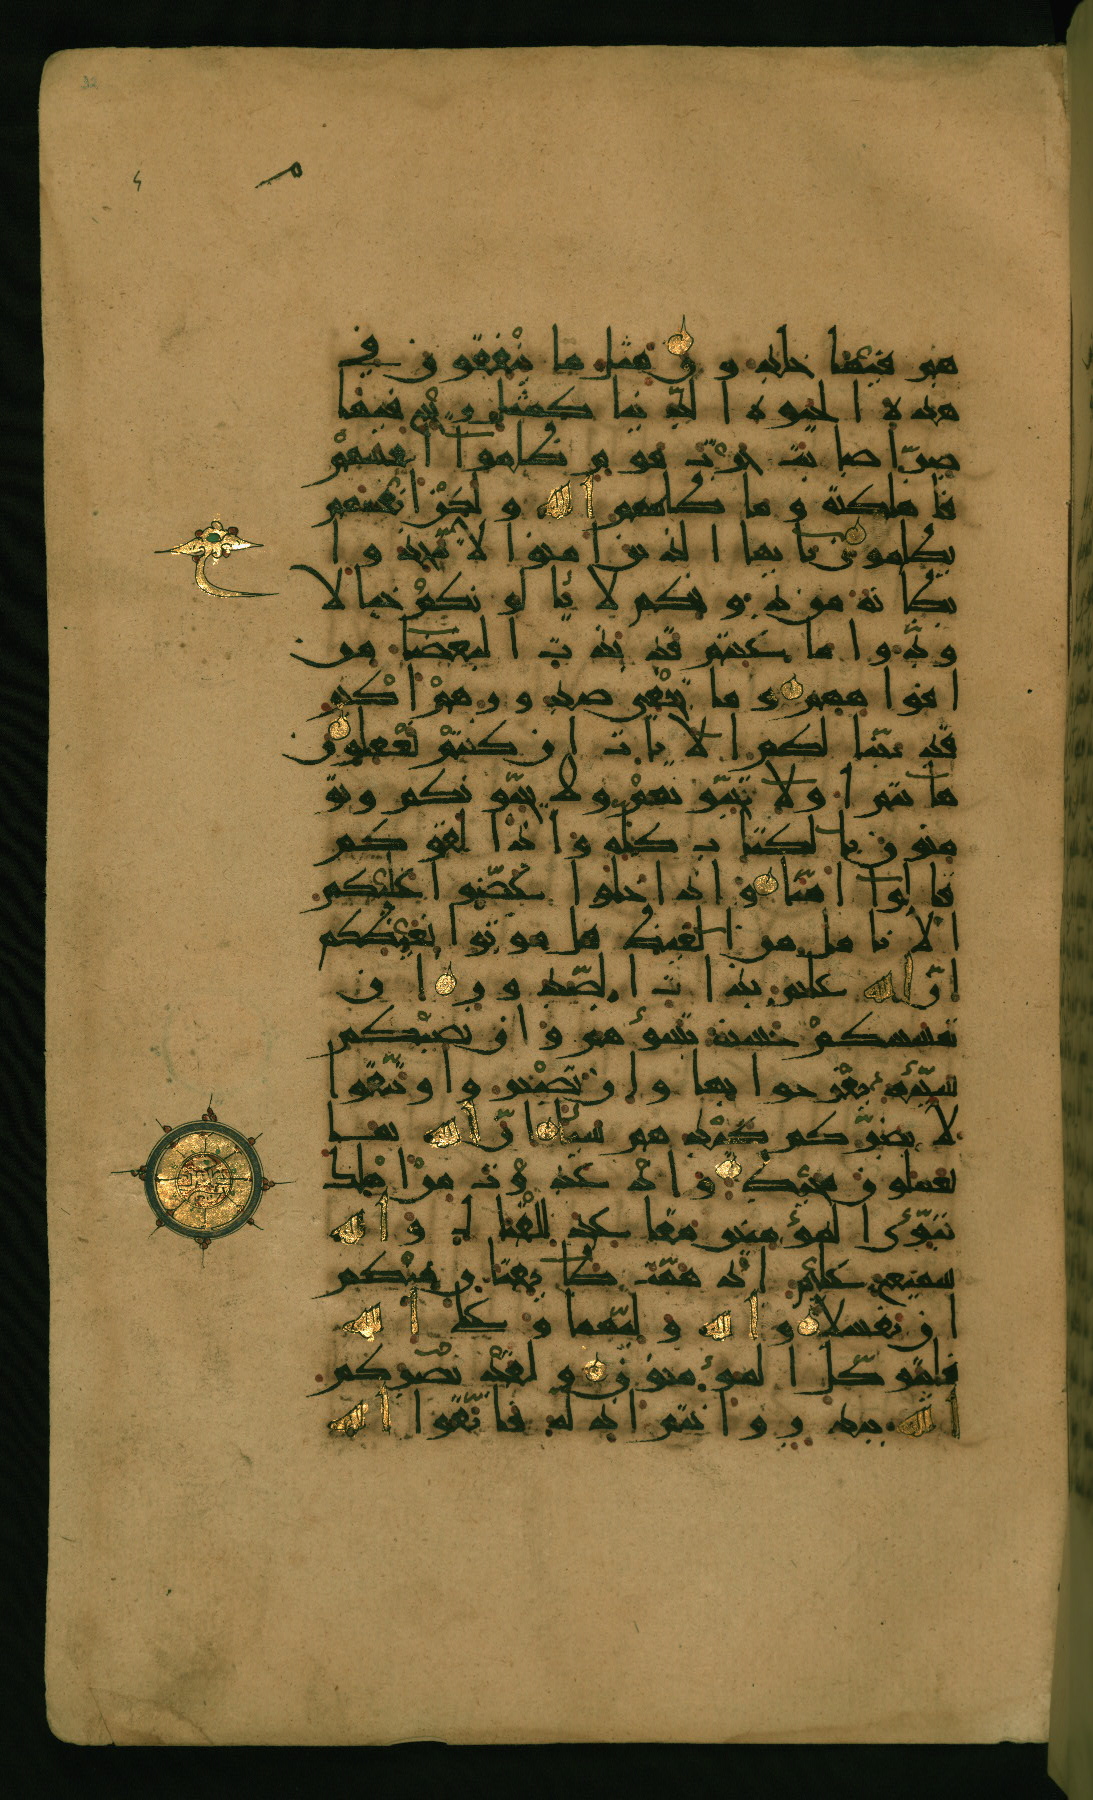 هم فيها خلدون مثل ما ينفقون في
هذه الحيوة الدنيا كمثل ريح فيها
صرّ اصابت حرث قوم ظلموا انفسهم
فاهلكته وما ظلمهم الله ولكن انفسهم
يظلمون يايها الذين امنوا لا تتخذوا
بطانة من دونكم لا يالونكم خبالا
ودّوا ما عنتم قد بدت البغضا من
افواههم وما تخفي صدورهم اكبر
قد بيّنا لكم الايات ان كنتم تعقلون
هانتم اولا تحبّونهم ولا يحبّونكم وتؤ
منون بالكتاب كلّه واذا لقوكم
قالوا امنّا واذا خلوا عضّوا عليكم
الانامل من الغيظ قل موتوا بغيظكم
انّ الله عليم بذات الصّدور ان
تمسسكم حسنة تسؤهم وان تصبكم
سيّئة يفرحوا بها وان تصبروا وتتّقوا
لا يضرّكم كيدهم شيئا انّ الله بما
يعملون محيط واذ غدوت من اهلك
تبوّئ المؤمنين مقاعد للقتال والله
سميع عليم اذ همّت طائفتان منكم
ان تفشلا والله وليّهما وعلى الله
فليتوكّل المؤمنون ولقد نصركم
الله ببدر وانتم اذلة فاتّقوا الله